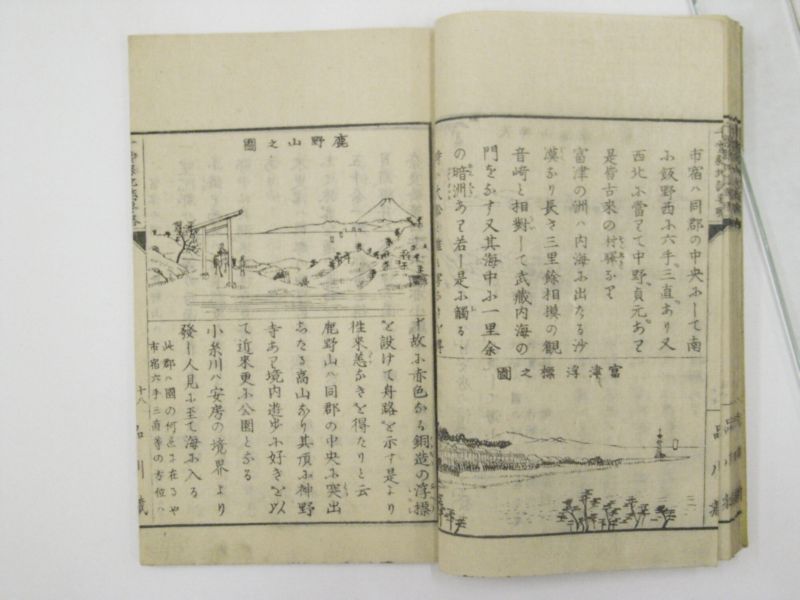 市宿ハ同郡の中央ふして南
ふ飯野西ふ六手、三直あり又
西北ふ當てて中野、貞元あり
是皆古来の村驛なり
富津の洲ハ内海ふ出たる沙
漠なり長さ三里餘相摸の觀
音崎と相對して武藏内海の
門をなす又其海中ふ一里余
の暗洲あり若し是ふ觸るゝ
富津浮標之圖
十故ふ赤色なる銅造の浮標
を設けて舟路を示す是より
徃来恙なきを得たりと云
鹿野山ハ同郡の中央ふ突出
したる高山なり其頂ふ神野
寺あり境内遊歩ふ好きを以
て近来更ふ公園となる
小糸川ハ安房の境界より
發し人見ふ至て海ふ入る
此郡ハ國の何点ふ在るや
市宿六手三直等の方位ハ
鹿野山之圖
十八
品川